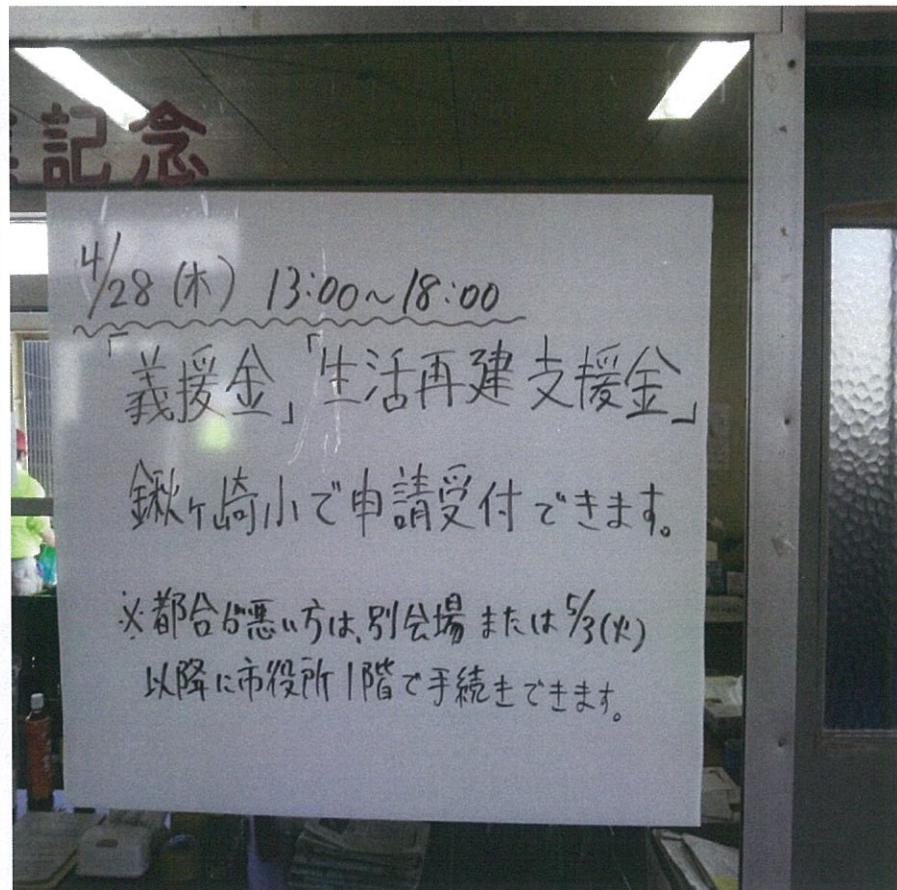 記念
4/28(木) 13:00~18:00
「義援金」「生活再建支援金」
鍬ヶ崎小で申請受付できます。
※都合が悪い方は、別会場または5/3(火)
以降に市役所1階で手続きできます。